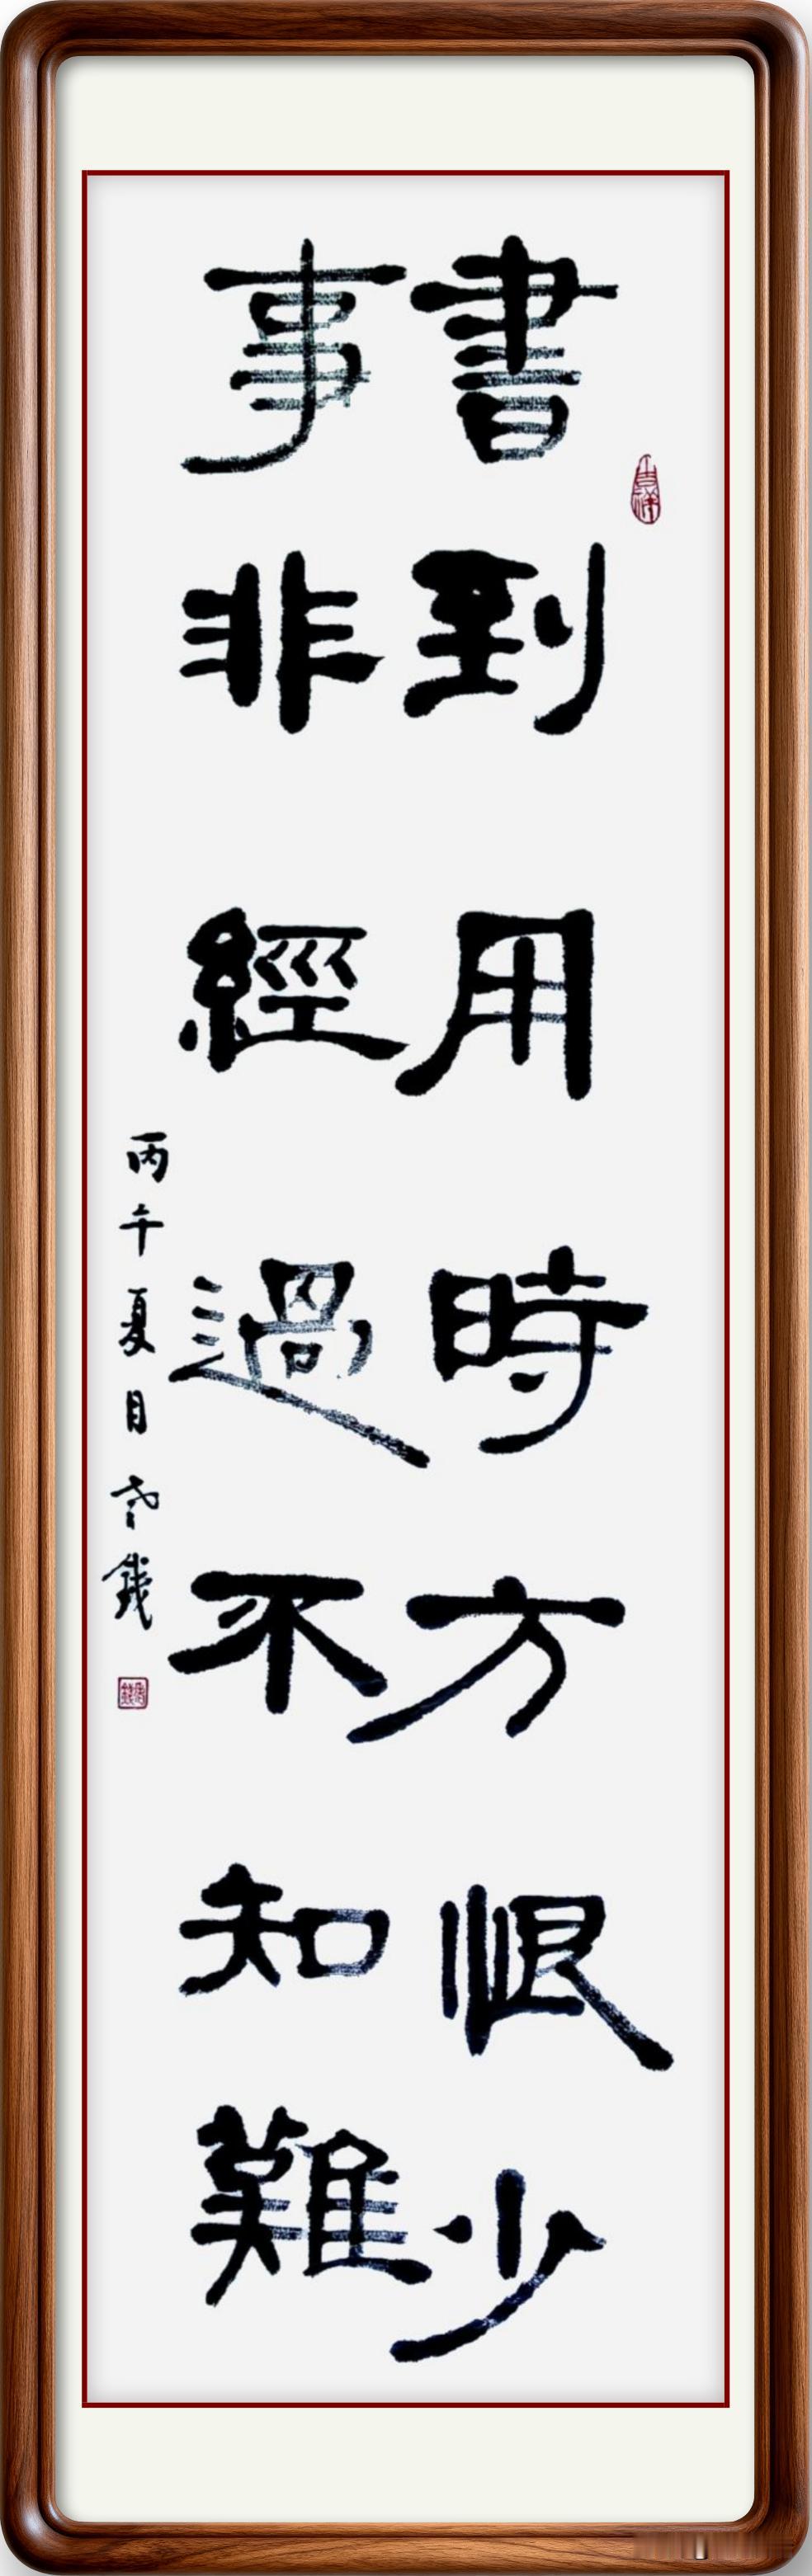 書到用時方恨少
事非經過不知難
丙午夏月 老錢